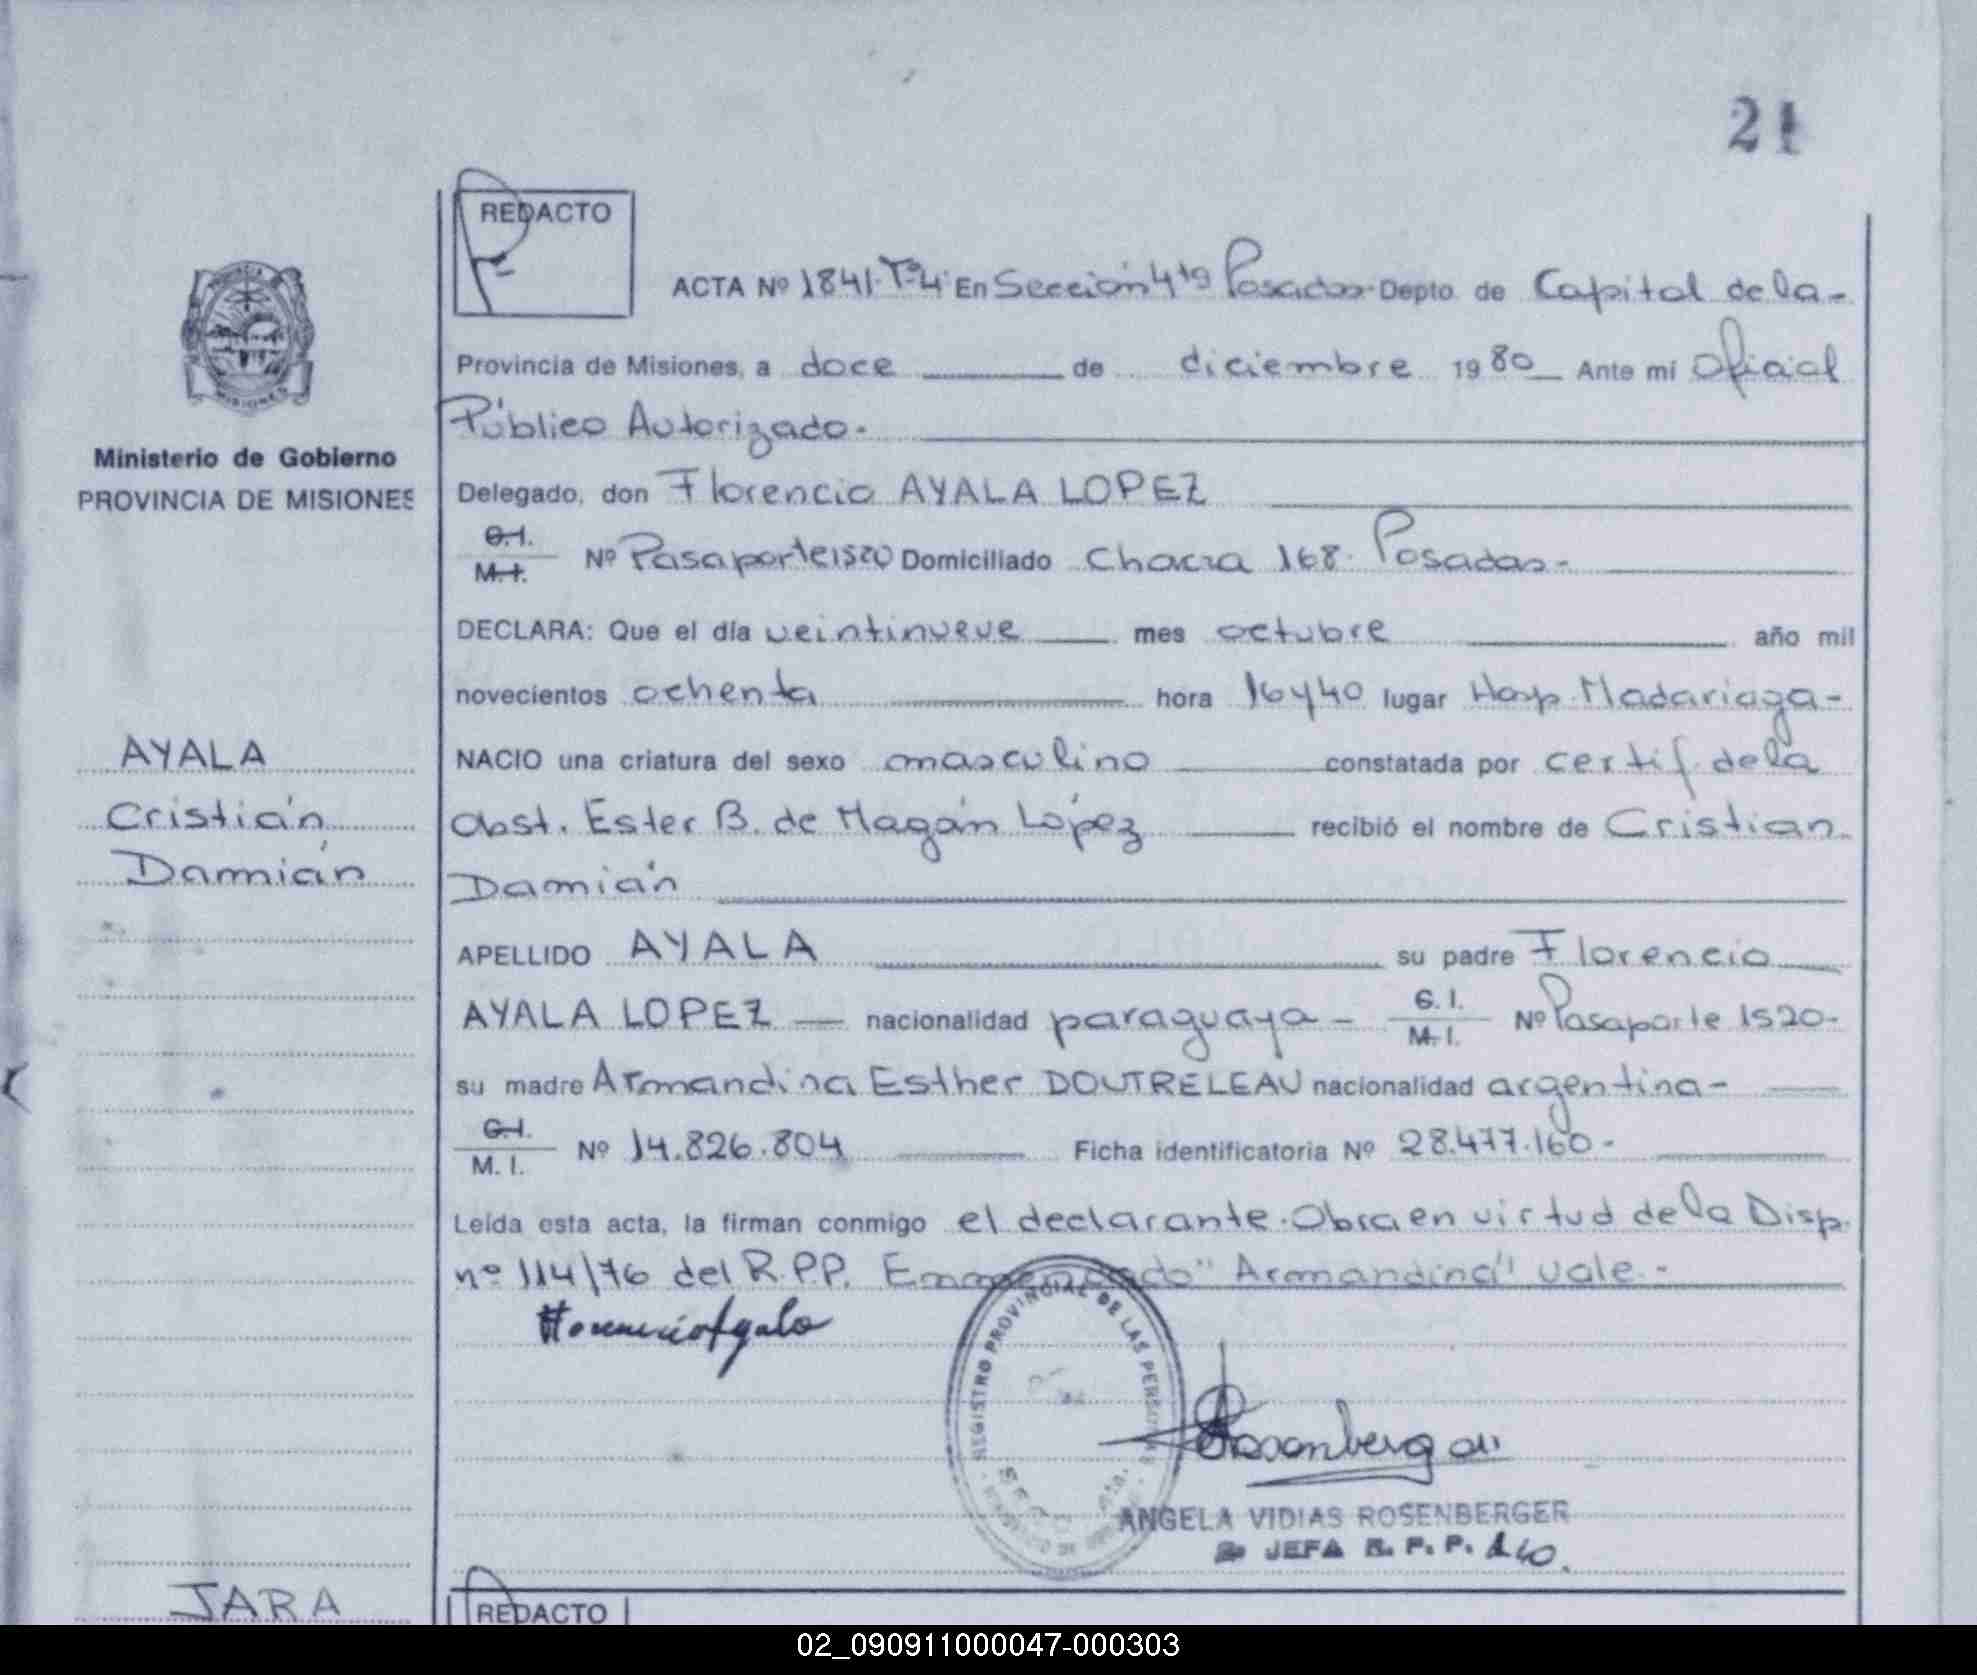 21
REDACTO
ACTA Nº 1841-Tº4 En Sección 4ta Posadas Depto. de Capital de la-
Provincia de Misiones, a doce de diciembre 1980 Ante mí Oficial
Público Autorizado.
Ministerio de Gobierno
PROVINCIA DE MISIONES
Delegado, don Florencio AYALA LOPEZ
C.I. M.I. Nº Pasaporte 1520 Domiciliado Chacra 168. Posadas.-
DECLARA: Que el día veintinueve mes octubre año mil
novecientos ochenta hora 16y40 lugar Hosp. Madariaga-
AYALA
Cristián
Damián
NACIO una criatura del sexo masculino constatada por certif. de la
Obst. Ester B. de Magán López recibió el nombre de Cristian
Damián
APELLIDO AYALA su padre Florencio
AYALA LOPEZ nacionalidad paraguaya - C.I. M.I. Nº Pasaporte 1520-
su madre Armandina Esther DOUTRELEAU nacionalidad argentina-
C.I. M.I. Nº 14.826.804 Ficha identificatoria Nº 28.477.160-
Leída esta acta, la firman conmigo el declarante. Obra en virtud de la Disp.
nº 114/76 del R.P.P. Enmendado "Armandina" vale.-
Florencio Ayala
REGISTRO PROVINCIAL DE LAS PERSONAS
Rosenberger
ANGELA VIDIAS ROSENBERGER
JEFA R. P. P.
JARA
REDACTO
02_090911000047-000303